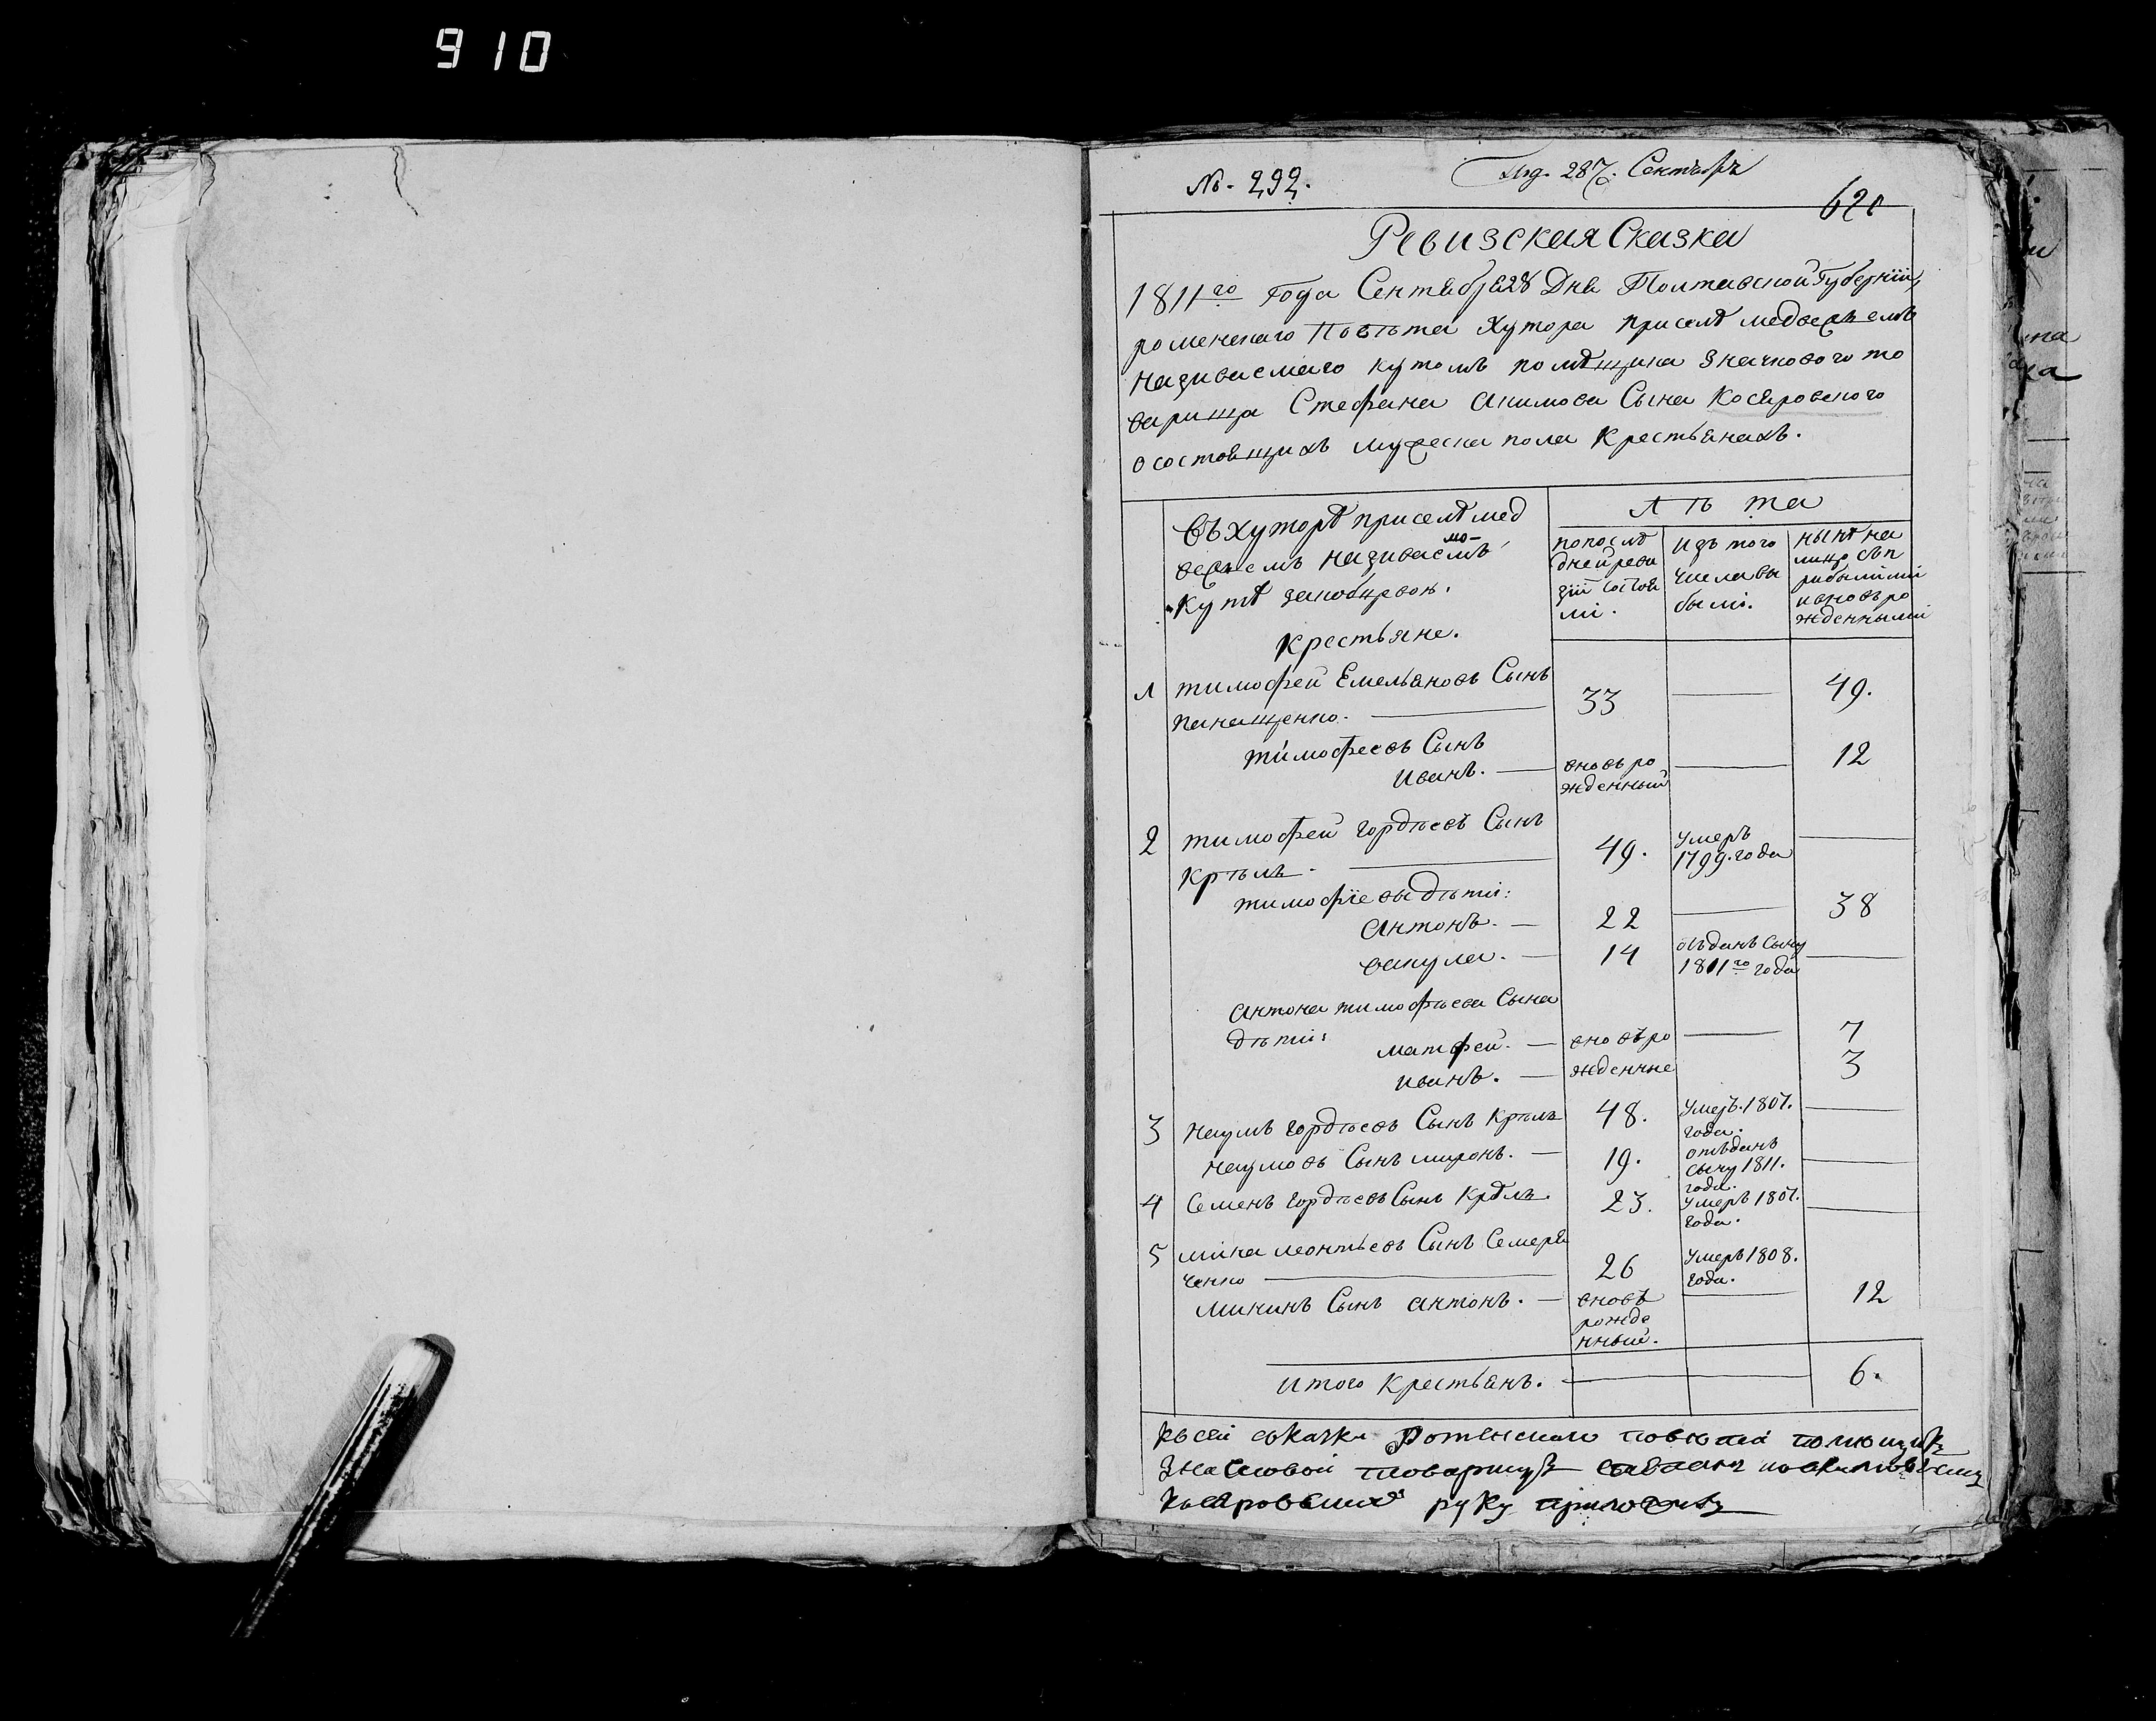 910
№. 292.
Под. 28/7. Сентябрь
620
Ревизская Сказка
1811го года Сентября 28 Дня Полтавской Губернїи,
роменскаго Повѣта Хутора при селѣ медвежемъ
називаемаго кутомъ помѣщика Значкового то
варища Стефана Акимова Сына Косяровского
о состоящихъ мужеска пола Крестьянахъ.
Въ хуторѣ при селѣ мед
вежемъ називаемомъ
Кутѣ
крестьяне.
Лѣта
по послѣ
дней реви
зїи состоя
ли.
изъ того
числа вы
были.
нынѣ на
лицо съ п
рибылими
и вновь ро
жденными
1 тимофей Емельяновъ Сынъ
панащенко. 33 — 49.
тимофеевъ Сынъ
иванъ. — вновь ро
жденный — 12
2 тимофей гордѣевъ Сынъ
Крѣль. 49. умеръ
1799. года —
тимофїевы дѣти:
Антонъ. — 22 — 38
вакула. — 14 отъданъ Сыну
1811го года —
Антона тимофѣева Сына
дѣти:
матфей. — вновъ ро — 7
иванъ. — жденние 3
3 наумъ гордѣевъ Сынъ Крѣль 48. умеръ. 1807.
года. —
наумовъ Сынъ миронъ. — 19. отъданъ
сыну 1811.
года. —
4 Семенъ гордѣевъ Сынъ Крѣль. 23. умеръ 1807.
года. —
5 мина леонтьевъ Сынъ Семеря
ченко 26 умеръ 1808.
года.
мининъ Сынъ антонъ. — вновъ
рожде
нный. — 12
итого крестьянъ. — 6.
къ сей скажки Роменскаго повета помещикъ
Значковой товарищъ
Косяровский руку приложилъ